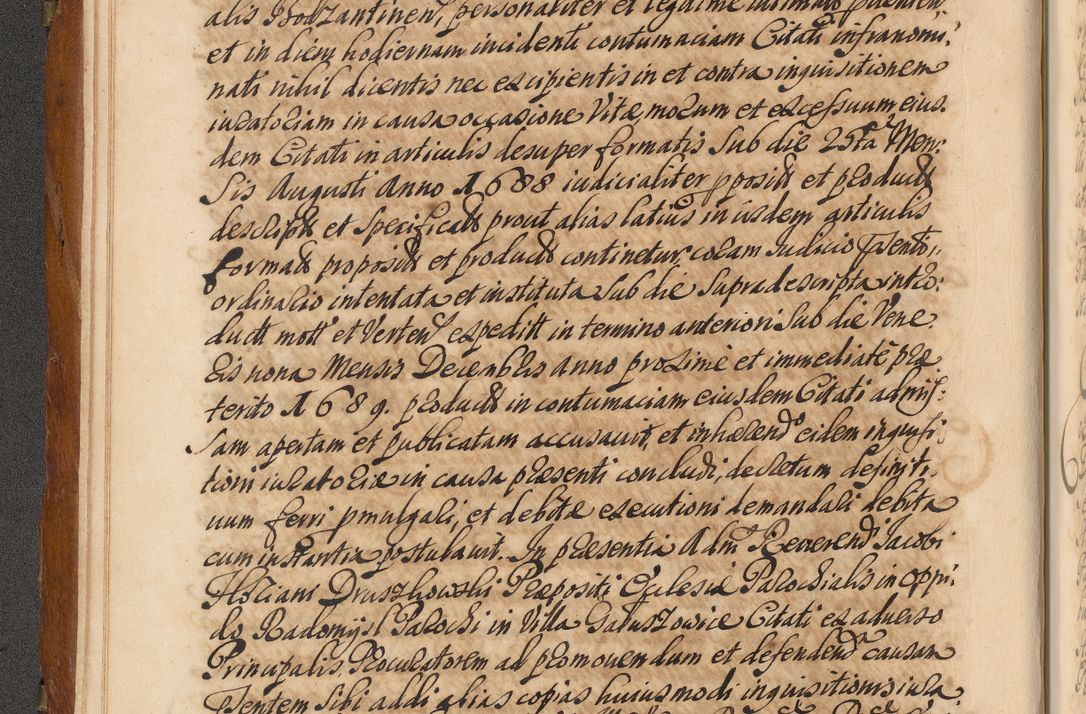 alis Bodzantinen, personaliter et legitime intimatis
et in diem hodiernam incidenti contumaciam Citati infranomi,
nati nihil dicentis nec excipientis in et contra inquisitionem
iuratoriam in causa occasione Vitæ, morum et excessuum eius,
dem Citati in articulis desuper formatis Sub die 25ta Men:
Sis Augusti Anno 1688 iudicialiter ppositis et productis
descriptis et Specificatis prout alias latius in iisdem articulis
formatis propositis et productis continetur, coram Iudicio Prsenti,
ordinario intentata et instituta Sub die Supradescripta intro:
ductis mott et Verten expeditt in termino anteriori Sub die Vene,
ris nona Mensis Decembris anno proxime et immediate præ
terito 1689. productis in contumaciam eiusdem Citati admis:
Sam apertam et publicatam accusavit, et inhærend eidem inquisi:
tioni iuratoriæ in causa præsenti concludi, decretum definiti,
uum ferri pmulgari, et debitæ executioni demandari debita
cum instantia postulauit. In præsentia Adm Reverend Iacobi
Floriani Druszkowski Præpositi Ecclesiæ Parochialis in oppi,
do Radomysl Parochi in Villa Gatuszowice Citati ex adverso
Principalis, Procuratorem ad promovendum et defendend causam
Prsentem Sibi addi alias copias huiusmodi inquisitionis iura